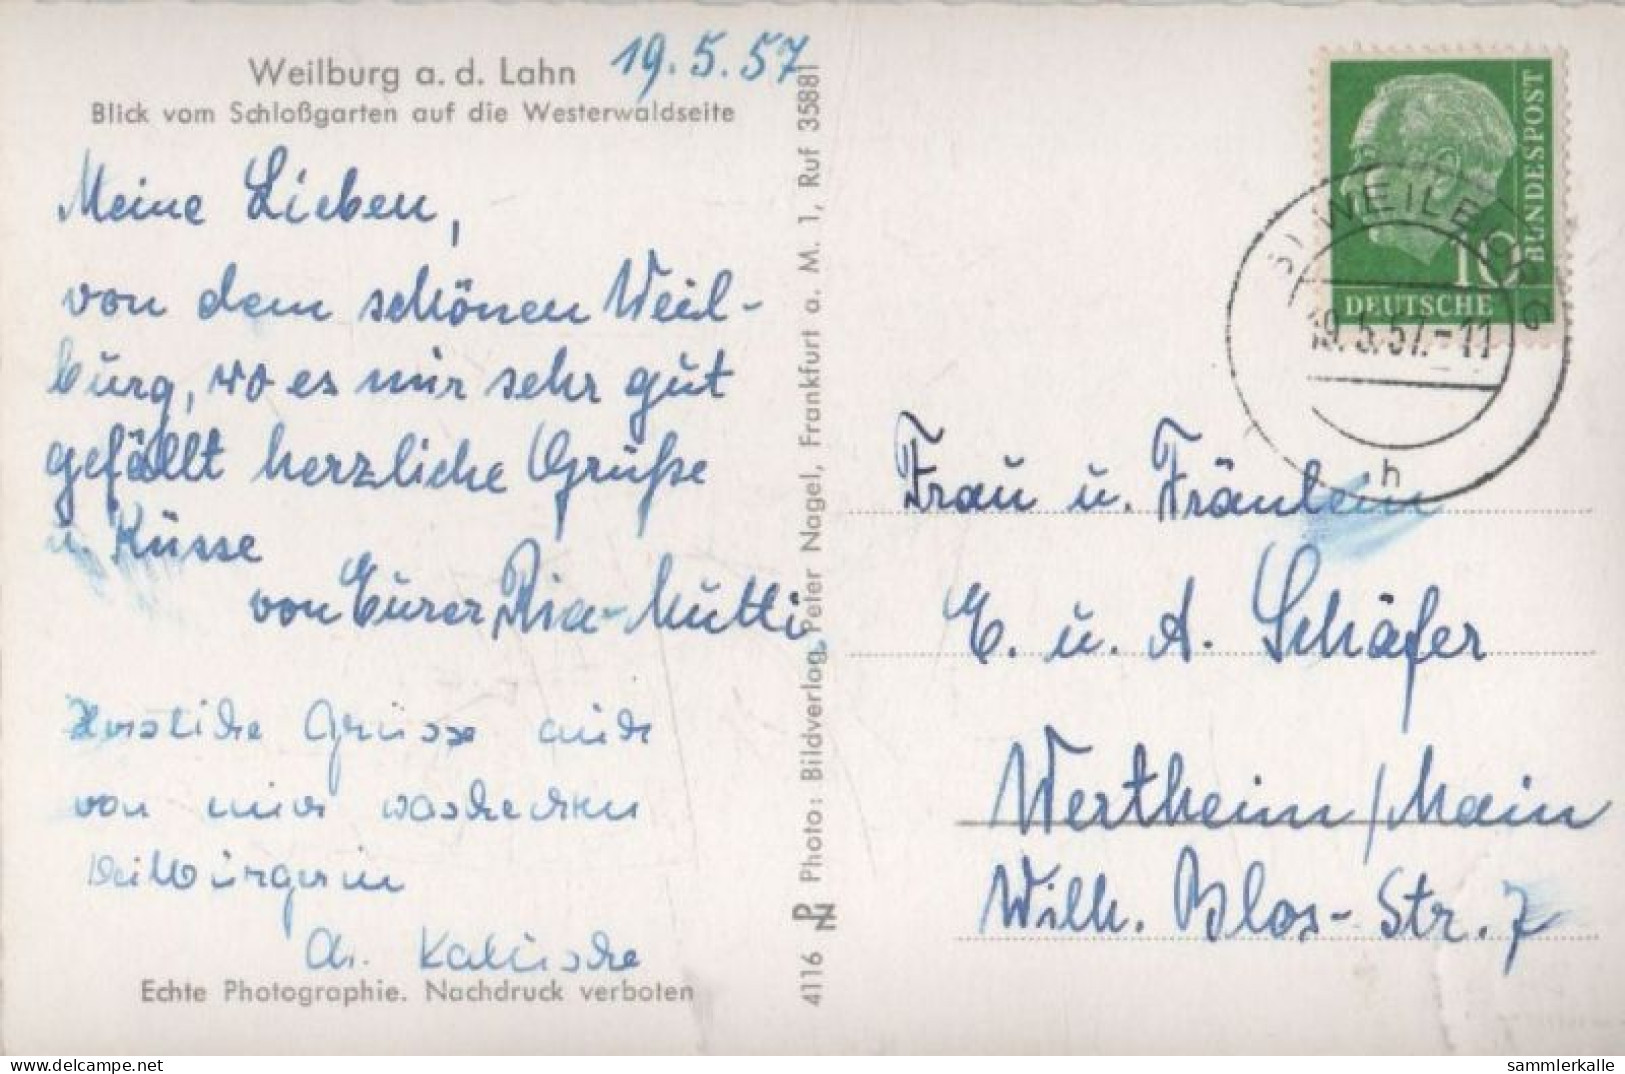 Weilburg a. d. Lahn
19.5.57
Blick vom Schloßgarten auf die Westerwaldseite
Meine Lieben,
von dem schönen Weil-
burg, wo es mir sehr gut
gefällt herzliche Grüße
u. Küsse
von Eurer Ria-Mutti
Herzliche Grüsse auch
von einer waschechten
Weilbürgerin
Echte Photographie. Nachdruck verboten
4116 Photo: Bildverlag Peter Nagel, Frankfurt a. M. 1, Ruf 35881
BUNDESPOST
10
DEUTSCHE
WEILBURG
19.5.57.-11
h
Frau u. Fräulein
E. u. A. Schäfer
Wertheim/Main
Wilh. Blos-Str. 7
delcampe.net
sammlerkalle